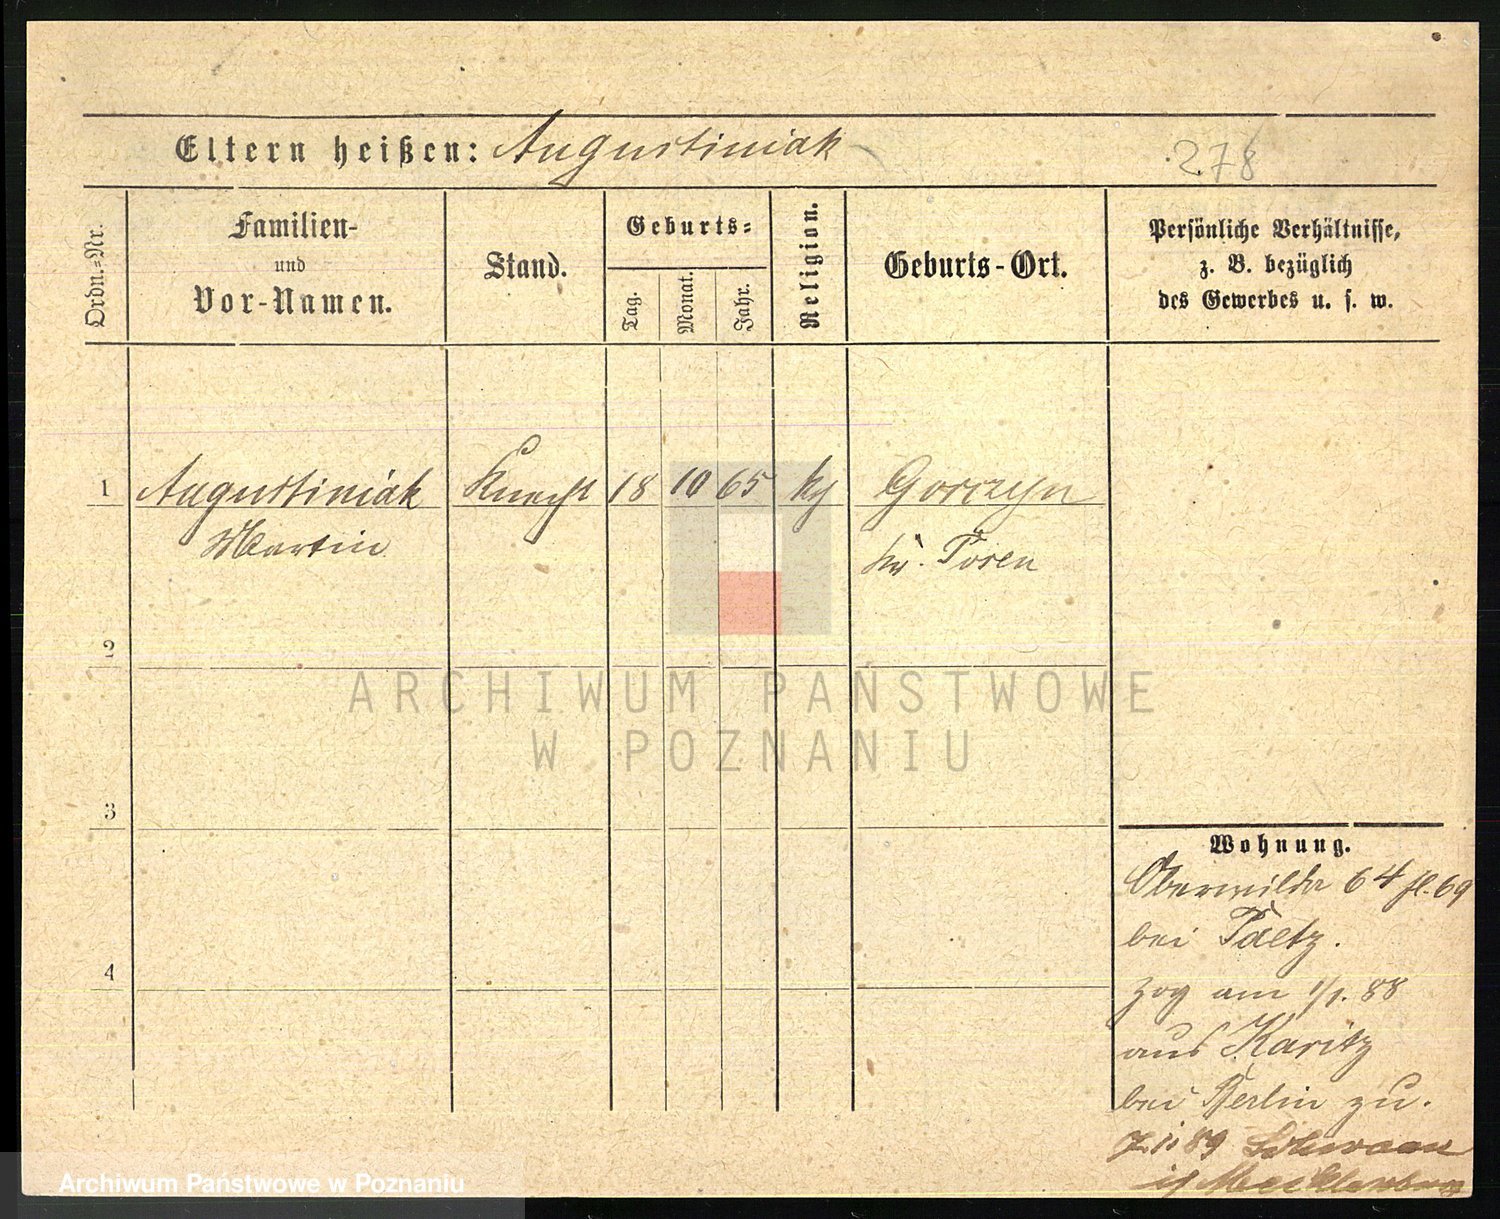 Eltern heißen: Augustiniak
278
Ordn.=Nr.
Familien-
und
Vor-Namen.
Stand.
Geburts=
Tag.
Monat.
Jahr.
Religion.
Geburts-Ort.
Persönliche Verhältnisse,
z. B. bezüglich
des Gewerbes u. s. w.
1 Augustiniak Knecht 18 10 65 kg Gorczyn
Martin Kr. Posen
2
ARCHIWUM PANSTWOWE
W POZNANIU
3
Wohnung.
Oberwilda 64 fl. 69
bei Paetz.
4
zog am 1/1. 88
aus Karitz
bei Berlin zu.
89 Schwaan
Mecklenburg
Archiwum Państwowe w Poznaniu